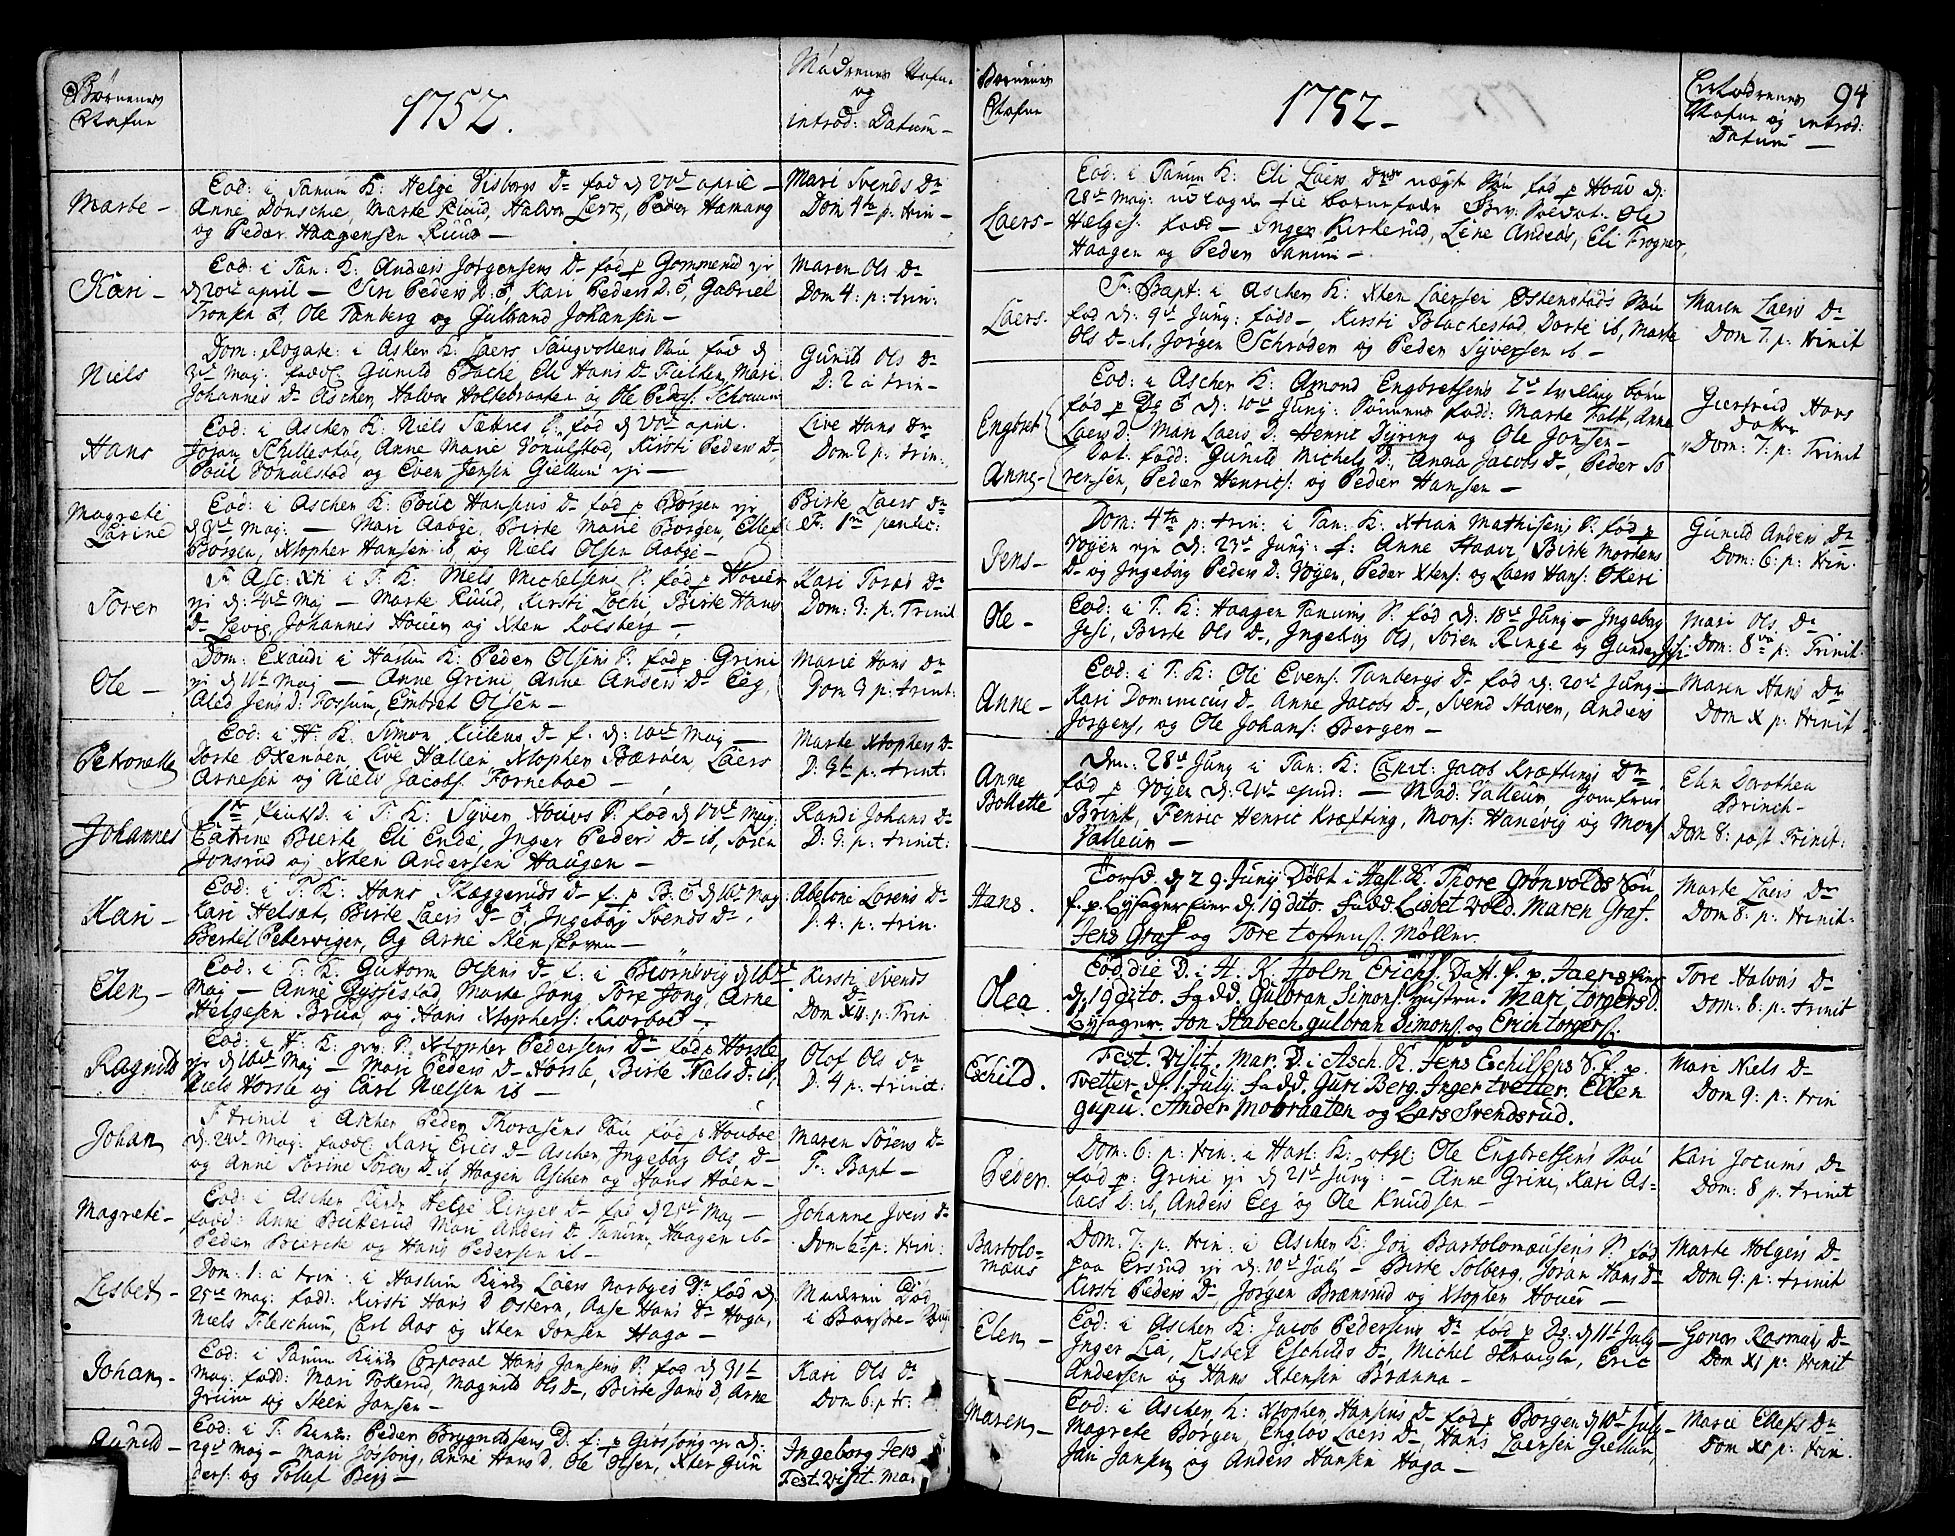 Børnenes
Nafne
1752.
Mødrenes Nafne
og
introd: Datum -
Marte -
Eod: i Tanum K: Helge Visborgs D. fød d april -
Anne Dønschie, Marte Ruud, Halvor Peder Hamang
og Peder Haagensen Ruud -
Mari Svends Dr
Dom 4te p: trin -
Kari -
Eod: i Tan: K: Anders Jørgensens D. fød p Gommerud
d 20de april - Siri Peders D: Kari Peders D: Gabriel
Tronsen Ole Tanberg og Gulbrand Johansen -
Maren Ols Dr
Dom 4: p: trin:
Niels
Dom: Rogate: i Asker K: Laers Saugvoldens fød d
Maj: Gunild Bache Eli Hans D. Mari
Johannes D. Aschen, Halvor Holsebraaten og Ole Peders: Schouum
Gunild Ols Dr
D: 2 a trin -
Hans
Eod: i Ascher K: Niels Sætres S. fød d april.
Joran Schillestad, Anne Marie Vonulstad, Kirsti Peders D.
Poul Vonulstad og Even Jensen Giellum -
Live Hans Dr
Dom: 2 p: trin:
Magrete
Larine
Eod: i Ascher K: Poul Hansens D. fød p Borgen
d Maj: - Mari Aabye, Birte Marie Borgen, Ellef
Borgen, Xtopher Hansen ib, og Niels Olsen Aabye -
Birte Laers Dr
Fr: 1m pentec:
Søren
F: Asc: Xti i T: K: Niels Michelsens S. fød p Houer
d: Maj - Marte Ruud, Kirsti Lochi, Birte Hans
D. Johannes Houer og Xten Kolsberg -
Kari Toras Dr
Dom: 3: p: Trinit
Ole -
Dom: Exaudi i Haslum K: Peder Olsens S. fød p Grini
d 11te Maj - Anne Grini, Anne Anders D. Eeg,
Aled Jens D: Fossum, Embret Olsen -
Marie Hans Dr
Dom 3 p: trinit:
Petronelle
Eod: i H: K: Simon Kulens D. f: d: 10de Maj -
Dorte Oxenøen, Live Hallen, Xtopher Barøen, Laers
Arnesen og Niels Jacobs: Forneboe -
Marte Xtophers D.
D: 3te p: trinit:
Johannes
1te Pintsd: i T: K: Syver Houvs S. fød d Maj
Catrine Bierke, Eli Ende, Inger Peders D. ib, Søren
Jonsrud og Xten Andersen Haugen -
Randi Johans D.
D: 3: p: trinit:
Kari -
Eod: i T: K: Hans Skaggeruds D. f: p Maj
Kari Helsæt, Birte Laers D. Ingebaj Svends D.,
Bertel Petersvigen, Og Arne Stenskroven -
Abeloni Lorens Dr
D: 4: p: trin:
Elen -
Eod: i T: K: Guttorm Olsens D. f: i Biørnsvig d
Maj - Anne Gyssestad, Marte Jong, Tore Jong, Arne
Helgesen Bruu, og Hans Xtophers: Kiørboe -
Kirsti Svends
Dr
Dom XII: p: Trin
Ragnild
Eod: i H: K: Xtopher Pedersens D. fød p Horsle
d Maj - Mari Peders D. Horsle, Birte Niels D: ib,
Niels Horsle og Carl Nielsen ib -
Olof Ols Dr
D: 4 p: trinit:
Johan
F trinit i Ascher Peder Thorasens fød p Houboe
d: 24de Maj: Kari Erics D. Aschen, Ingebaj Ols D.
og Anne Sorine Sørens D. ib, Haagen Aschen og Hans Høen -
Maren Sørens Dr
Fr: Bapt -
Magrete -
Eod: i Ascher Kirke Helge Ringers D. fød d 25de Maj -
fadd: Anne Buterud Mari Anders D. Tanum, Haagen ib -
Peder Bierche og Hans Pedersen ib -
Johanne Ivers D.
Dom 6te p: trin:
Lisbet -
Dom: 1: a trin: i Haslum Kirke Laers Narbyes D. fød d:
25de Maj: fadd: Kirsti Hans D Ostern, Aase Hans D. Haga,
Niels Fleschum, Carl Aas og Xten Jonsen Haga -
Moderen Død
i Barsel -
Johan -
Eod: i Tanum Kirke Corporal Hans Jansens S. fød d 31te
Maj. fadd: Mari Magnild Ols D., Birte Jans D, Arne
og Steen Jansen -
Kari Ols Dr
Dom 6: p tr:
Gunild -
Eod: i T: Kirke Peder Brygnildsens D. f: p d:
29de Maj - Mari Jossong, Anne Hans D. Ole Olsen, Xter Gun
ders: og Tollef Berg -
Ingeborg Jens
Fest. Visit. Mar
Børnenes
Nafne
1752 -
Mødrenes 94
Nafne og introd:
Datum -
Laers -
Eod: i Tanum K: Eli Laers Dr uægte fød p Houe d:
28de Maj: udlagde til barnefader Ole
Helges: fadd - Inger Kirkerud, Lene Andeas, Eli Frogner,
Haagen og Peder Tanum -
Laers.
Fr: Bapt: i Ascher K: Xten Laersen Østenstads
fød d: 9de Junj: fadd - Kirsti Blachestad, Dorte ib, Marte
Ols D. ib, Jørgen Schrøder og Peder Syversen ib -
Maren Laers Dr
Dom 7: p: trinit
Engbret
Anne -
Eod: i Ascher K: Amond Engbretsens 2de tvilling børn
fød p d: 10de Junj: Sønnens fadd: Marte Falk, Anne
Laers D: Mari Laers D: Henric Dyring og Ole Jonsen -
Dat: fadd: Gunild Michels D., Anna Jacobs D., Peder So
rensen, Peder Henrics: og Peder Hansen -
Giertrud Hans
Datter
Dom: 7: p: Trinit
Jens -
Dom: 4te p: trin: i Tan: K: Xtian Mathisens S. fød p
Vøyen d: 23de Junj: f: Anne Haave, Birte Mortens
D. og Ingebaj Peders D: Vøyen, Peder Xtens: og Laers Hans: Økeri
Gunild Anders Dr
Dom: 6: p: trin.
Ole -
Eod: i T: K: Haagen Tanums S. fød d: 18de Junj - Ingebaj
Jesi, Birte Ols D., Ingebaj Ols, Søren Ringe og Gunder
Mari Ols Dr
Dom: 8va p: Trinit:
Anne -
Eod: i T: K: Ole Evens: Tanbergs D. fød d: 20de Junj: -
Kari Dominicus D. Anne Jacobs D., Svend Haven, Anders
Jørgens, og Ole Johans: Bergen -
Maren Hans Dr
Dom X p: trinit -
Anne
Bollette
Den: 28de Junj i Tan: K: Capit: Jacob Kræftings Dr
fød p Vøyen d: 21de ejusd: - Mad: Valleur, Jomfru
Brink, Fenric Henric Kræfting, Mons: Hanevig og Mons:
Valleur -
Elen Dorothea
Brinch -
Dom 8: post Trinit:
Hans.
Torsd d 29. Junij Døbt i Hasl. K. Thore Grønvolds Søn
f. p. Lysager Eier d. 19 dito. fadd. Lisbet Vold. Maren Graf.
Jens Graf og Tore Møller.
Marte Laers Dr
Dom 8: p: trinit:
Olea.
Eod. die D. i H. K. Holm Erichs. Datt. f. p. Jaer
d. 19 dito. Fadd. Gulbran Simons. Hustru. Mari Torgers D.
Lysager. Jon Stabech. Gulbran Simons. og Erich Torgers.
Tore Halvors Dr
Dom: 8: p: trinit
Eschild.
Fest. Visit. Mar. D. i Asch. K. Jens Eschillsens S. f. p.
Tvetter d. 1. July. fadd. Guri Berg. Inger Tvetter. Ellen
Gupu. Ander Mobraaten og Lars Svendsrud.
Mari Niels Dr
Dom 9: p: trin
Peder.
Dom: 6: p: trin: i Hasl: K: Ole Engbretsens
fød p: Grini d: 21de Junj: - Anne Grini, Kari As-
lacs D: ib, Anders Eeg og Ole Knudsen -
Kari Jocums Dr
Dom: 8 p: trinit
Bartolo-
mæus
Dom: 7: p: trin: i Ascher K: Jon Bartolomæusens S. fød
paa d: 10de July - Birte Solberg, Joran Hans D.
Kirsti Peders D., Jørgen Brænsrud og Xtopher Houer -
Marte Holgers Dr
Dom 9: p: trinit
Elen -
Eod: i Ascher K: Jacob Pedersens Dr fød p d 11te July -
Inger Lia, Lisbet Eschilds D., Michel Eric
Andersen og Hans Xtensen Branna -
Gonor Rasmus D.
Dom XI p: trinit
Maren -
Eod: i Ascher K: Xtopher Hansens D. fød p Borgen d 10de July -
Magrete Borgen, Englov Laers D., Hans Laersen Giellum,
Jan Jansen og Anders Hansen Haga -
Marie Ellefs Dr
Dom XI p: trin.